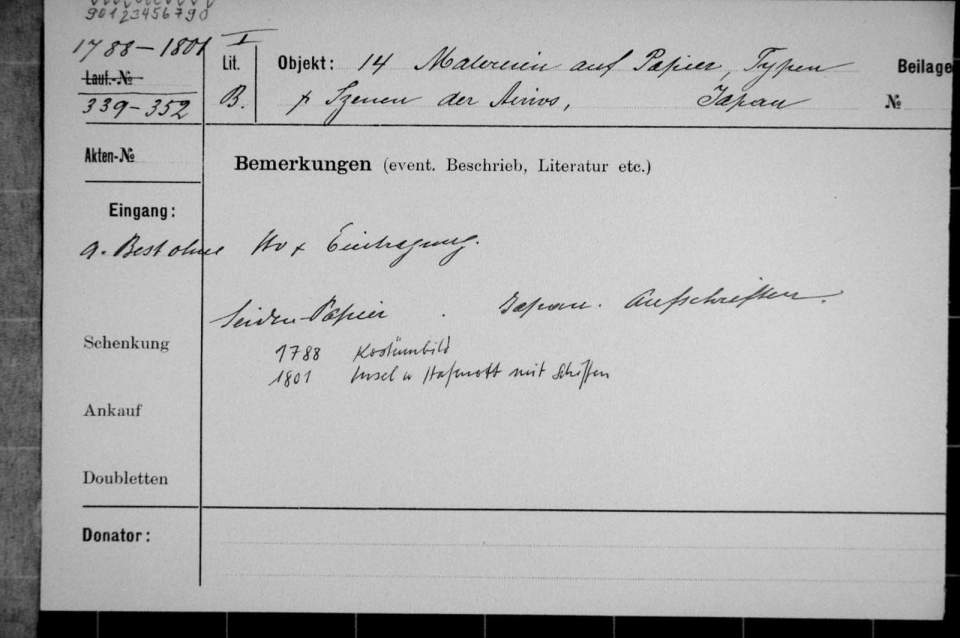 901234567890
1788-1801
I
Lauf.-№
339-352
Lit.
B.
Objekt: 14 Malereien auf Papier, Typen
+ Szenen der Ainos, Japan
Beilage
№
Akten-№
Bemerkungen (event. Beschrieb, Literatur etc.)
Eingang:
a. Best ohne No + Eintragung.
Seiden-Papier . Japan. Aufschriften.
Schenkung
1788 Kostümbild
1801 Insel u mit Schiffen
Ankauf
Doubletten
Donator: